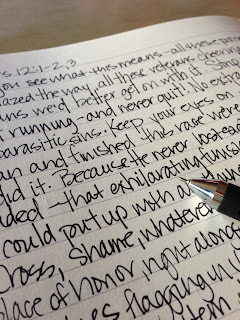 s 12:1-2,3
you see what this means - all these pione
lazed the way, all these veterans cheering
ans we'd better get on with it. Strip
t running - and never quit! No extra
parasitic sins. Keep your eyes on
an and finished this race we're
did it. Because he never lost s
ded - that exhilarating finish
could put up with a
Cross, shame, whatever
place of honor, right along
es flagging in